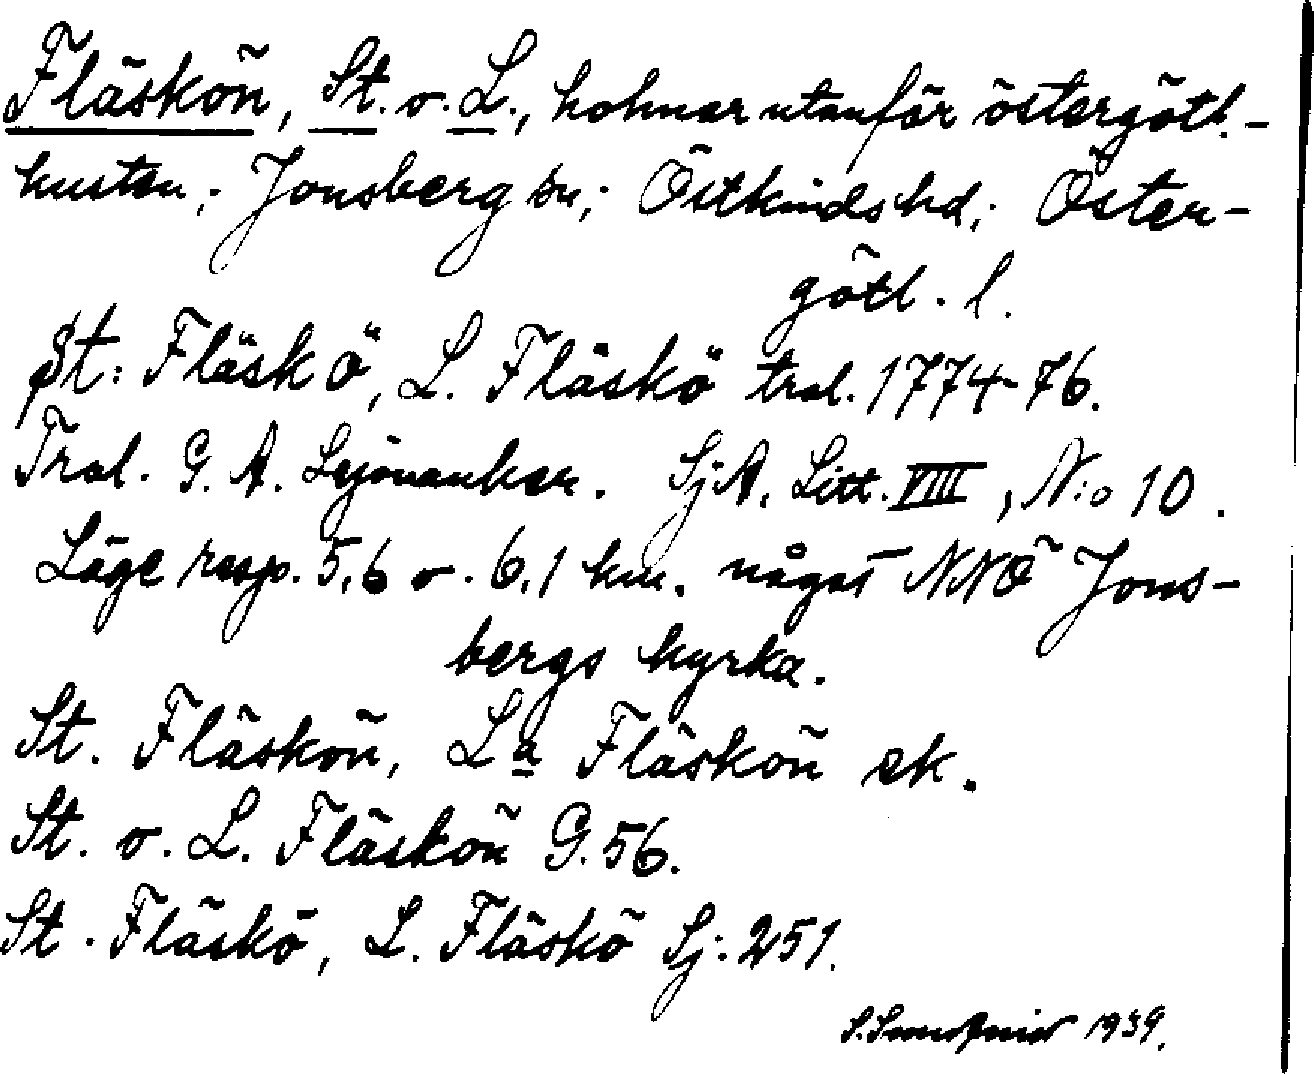 Fläskön, St. o. L., holmar utanför östergötl.-
kusten; Jonsberg sn; Östkinds hd; Öster-
götl. l.
St: Fläsk Ö, L. Fläskö tral. 1774-76.
Tral. G. A. Lejonanker. SjA, Litt. VIII, N:o 10.
Läge resp. 5,6 o. 6,1 km. något NNÖ Jons-
bergs kyrka.
St. Fläskön, La Fläskön ek.
St. o. L. Fläskön G. 56.
St. Fläskö, L. Fläskö Sj: 251.
1939.